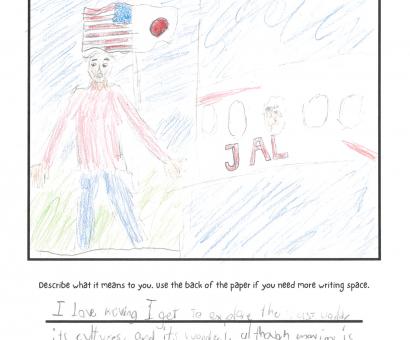 JAL
Describe what it means to you. Use the back of the paper if you need more writing space.
I love moving I get to explore the
its cultures, and it's although moving is